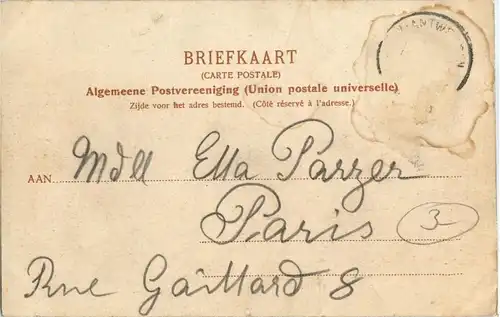 BRIEFKAART
(CARTE POSTALE)
Algemeene Postvereeniging (Union postale universelle)
Zijde voor het adres bestemd. (Côté réservé à l'adresse.)
AAN Mdll Ella Parzer
Paris
3
Rue Gaillard 8